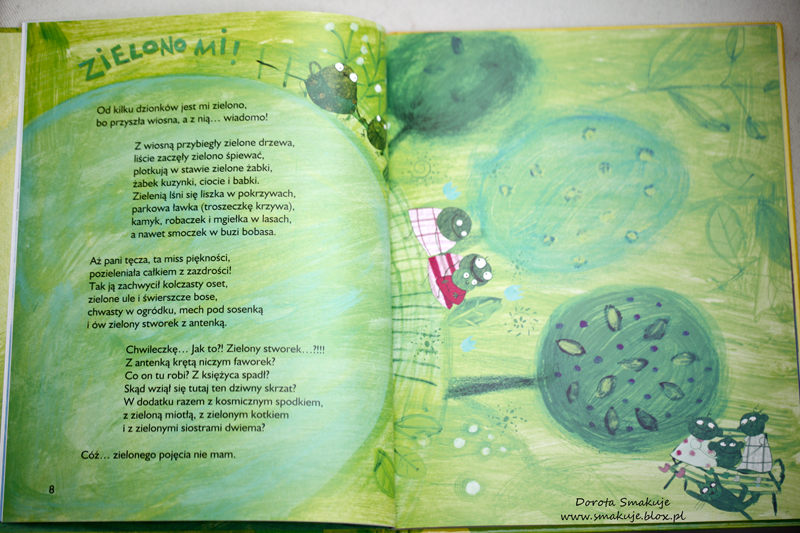 ZIELONO MI!
Od kilku dzionków jest mi zielono,
bo przyszła wiosna, a z nią... wiadomo!
Z wiosną przybiegły zielone drzewa,
liście zaczęły zielono śpiewać,
plotkują w stawie zielone żabki,
żabek kuzynki, ciocie i babki.
Zielenią lśni się liszka w pokrzywach,
parkowa ławka (troszeczkę krzywa),
kamyk, robaczek i mgiełka w lasach,
a nawet smoczek w buzi bobasa.
Aż pani tęcza, ta miss piękności,
pozieleniała całkiem z zazdrości!
Tak ją zachwycił kolczasty oset,
zielone ule i świerszcze bose,
chwasty w ogródku, mech pod sosenką
i ów zielony stworek z antenką.
Chwileczkę... Jak to?! Zielony stworek...?!!!
Z antenką krętą niczym faworek?
Co on tu robi? Z księżyca spadł?
Skąd wziął się tutaj ten dziwny skrzat?
W dodatku razem z kosmicznym spodkiem,
z zieloną miotłą, z zielonym kotkiem
i z zielonymi siostrami dwiema?
Cóż... zielonego pojęcia nie mam.
8
Dorota Smakuje
www.smakuje.blox.pl